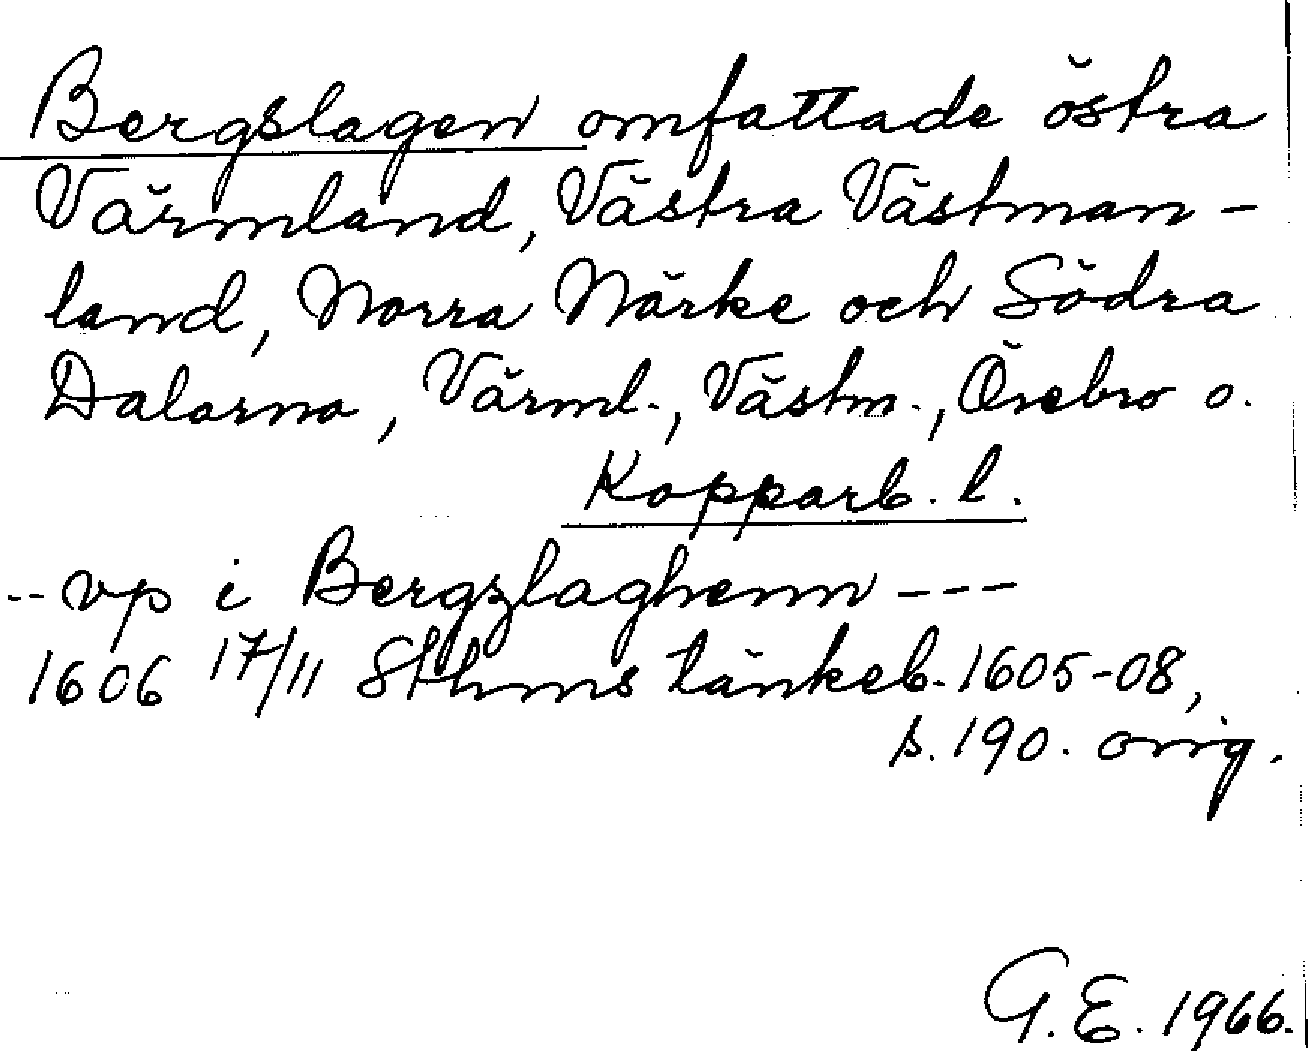 Bergslagen omfattade östra
Värmland, Västra Västman-
land, Norra Närke och Södra
Dalarna, Värml., Västm., Örebro o.
Kopparb. l.
-- vp i Bergzlaghenn ---
1606 17/11 Sthms tänkeb. 1605-08,
s. 190. orig.
G. E. 1966.